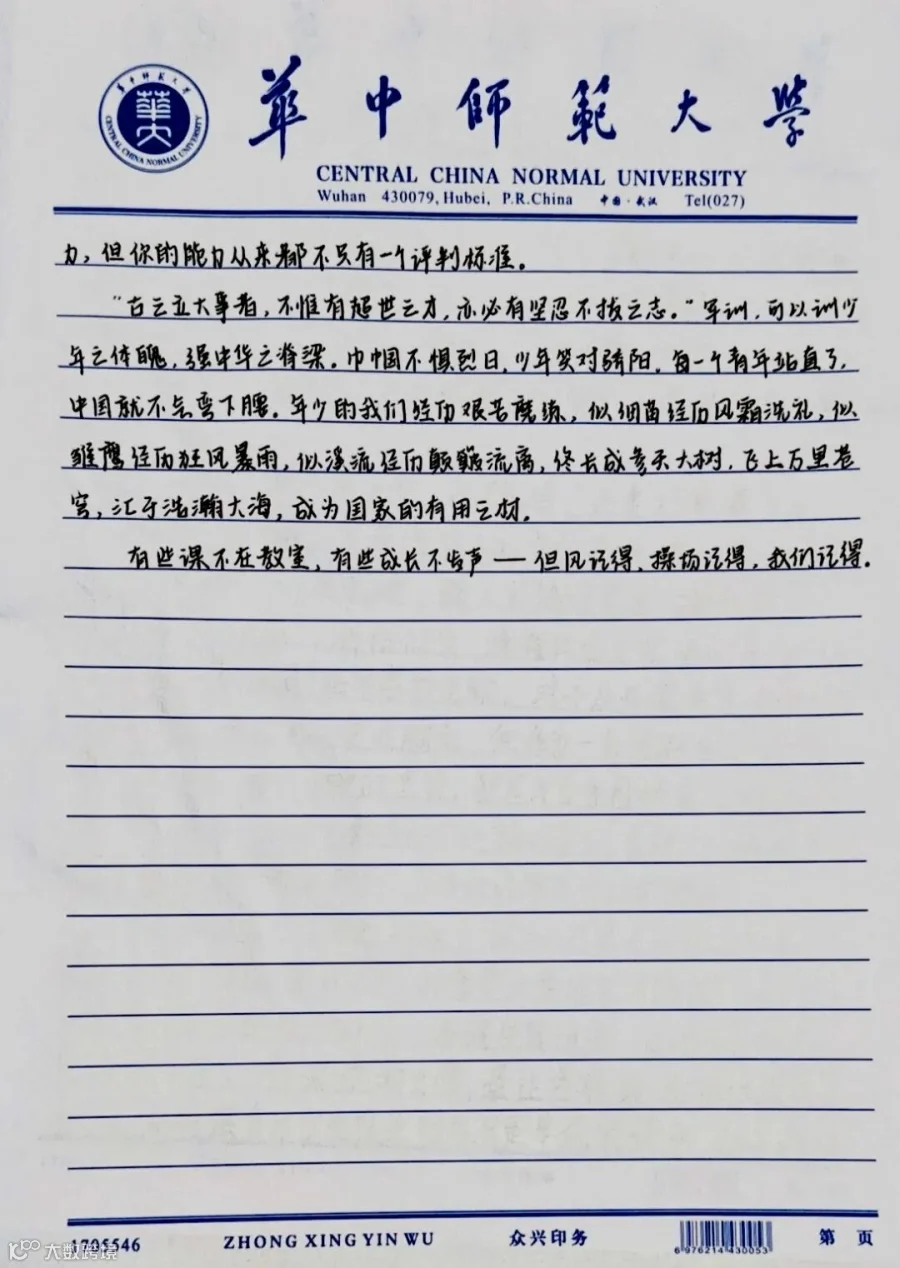 華中師範大學
華中師範大學
華大
CENTRAL CHINA NORMAL UNIVERSITY
CENTRAL CHINA NORMAL UNIVERSITY
Wuhan 430079, Hubei, P.R.China 中国·武汉 Tel(027)
力，但你的能力从来都不只有一个评判标准。
“古之立大事者，不惟有超世之才，亦必有坚忍不拔之志。”军训，可以训少
年之体魄，强中华之脊梁。巾帼不惧烈日，少年笑对骄阳。每一个青年站直了，
中国就不会弯下腰。年少的我们经历艰苦磨练，似细苗经历风霜洗礼，似
雏鹰经历狂风暴雨，似溪流经历颠簸流离，终长成参天大树，飞上万里苍
穹，汇于浩瀚大海，成为国家的有用之材。
有些课不在教室，有些成长不告声——但风记得，操场记得，我们记得。
1705546 ZHONG XING YIN WU 众兴印务 6 976214 430053 第 页
大数跨境